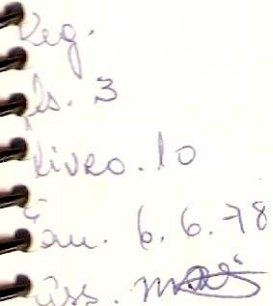 Reg.
fls. 3
Livro. 10
Em. 6.6.78
Ass.